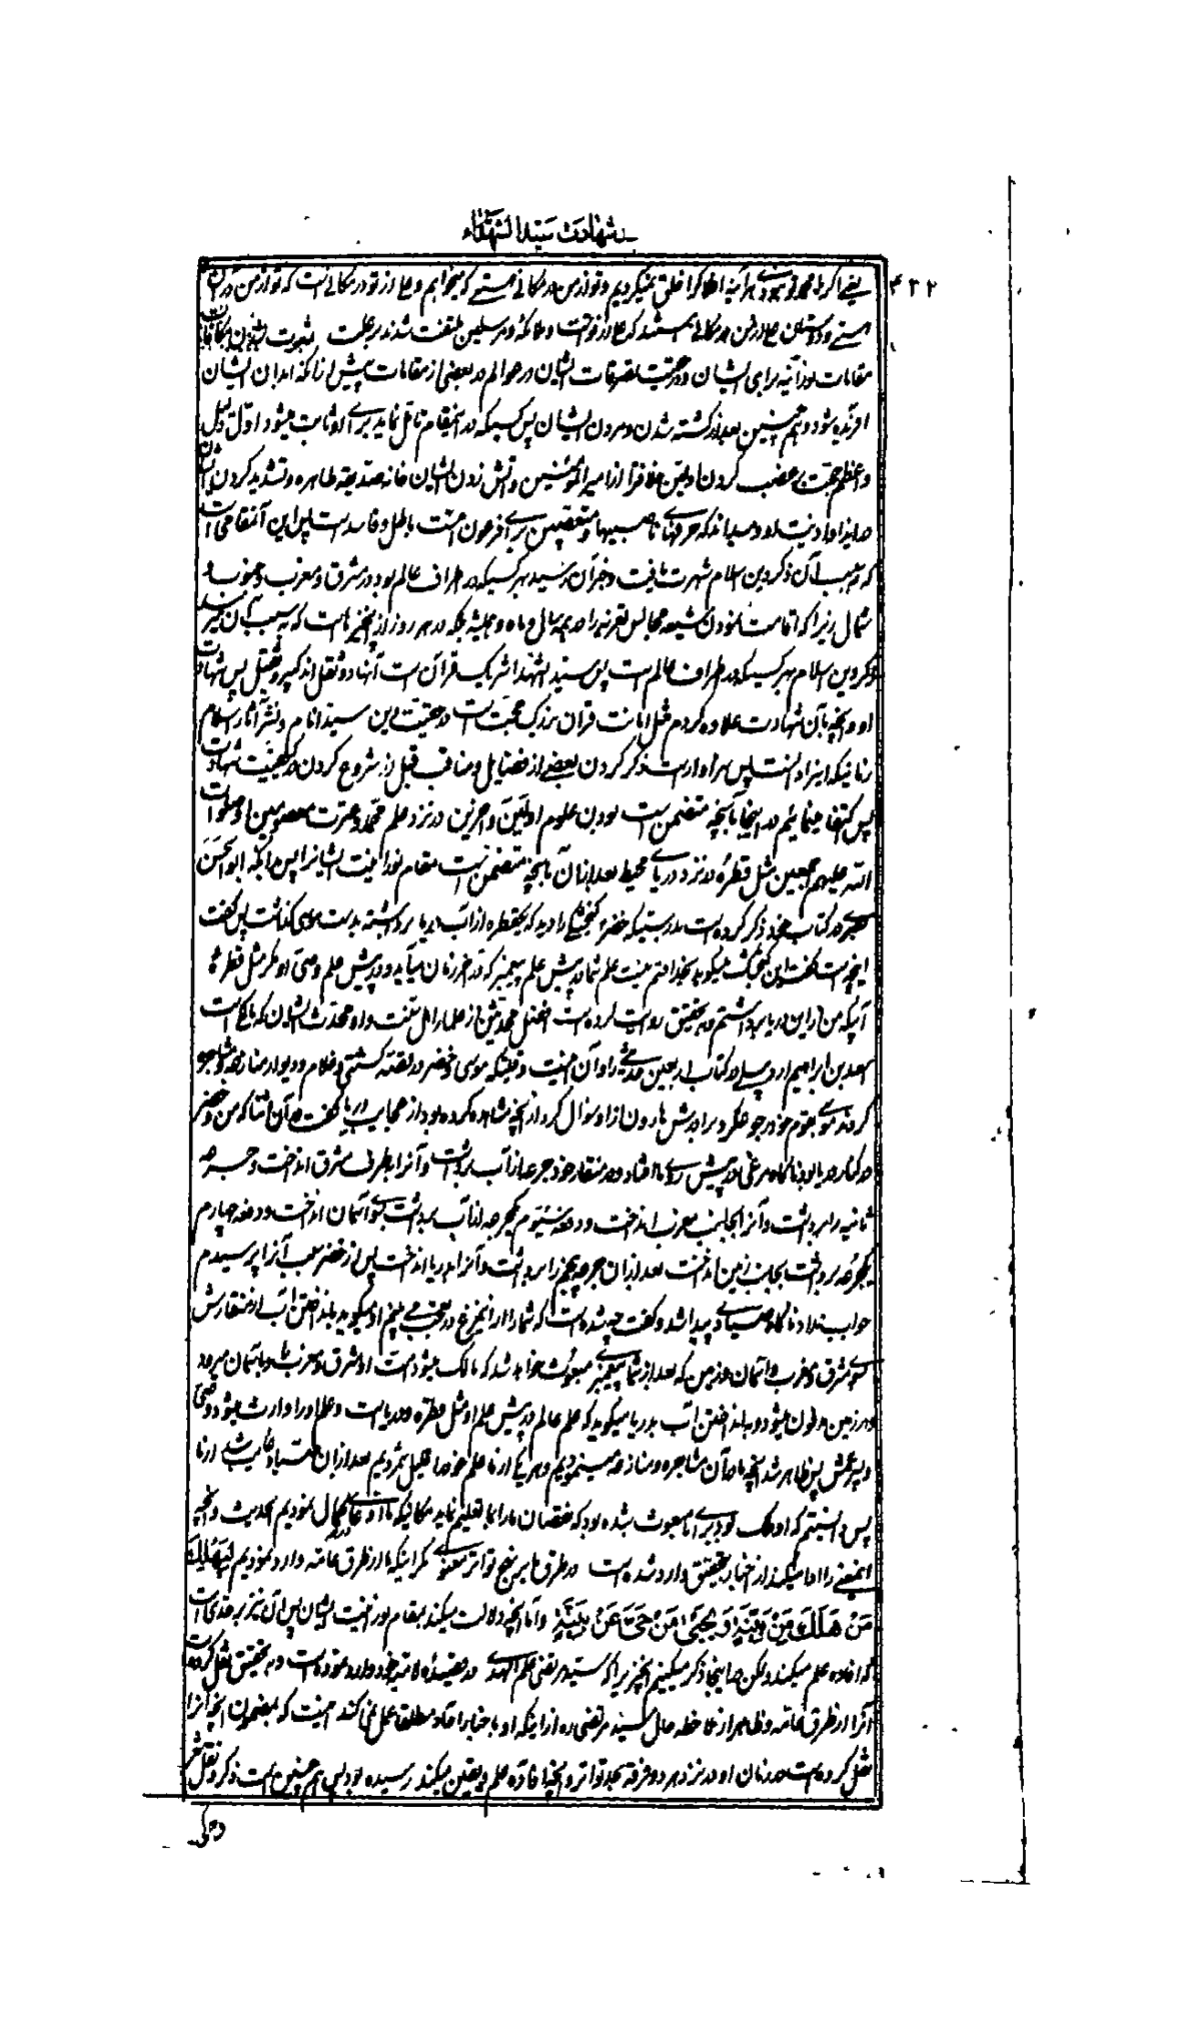 شهادت سید الشهداء
۴۲۲
یعنی اگر محمد نمیبود هر آینه افلاک را خلق نمیکردیم و تو از من در مکانی هستی که میخواهم و علی از تو در مکانی است که تو از من در آن
هستی و دوستان علی از من در مکانی هستند که علی از تو است و ملائکه و مرسلین ملتفت شدند بر علت
مقامات نورانیه برای ایشان و در حقیت تصرفات ایشان در عوالم در بعضی از مقامات پیش از آنکه ابدان ایشان
آفریده شود و هم چنین بعد از کشته شدن و مردن ایشان پس کسیکه در اینمقام تأمل نماید برای او ثابت میشود اول دلیل
و اعظم حجت بر غضب کردن اولین خلافت را از امیر المؤمنین و آتش زدن ایشان خانه صدیقه طاهره و تشدید کردن ایشان
در ایذاء و اذیت او و میداند که حرفهای ناصبیها و متعصبین برای فرعون امت باطل و فاسد است پس این آنمقامی است
که بسبب آن ذکر دین اسلام شهرت یافت و خبر آن رسید بهر کسیکه در اطراف عالم بود در مشرق و مغرب و جنوب و
شمال زیرا که اقامت نمودن شیعه مجالس تعزیه را در هر سال و ماه و هفته بلکه در هر روز از چیزیست که بسبب آن میرسد
ذکر دین اسلام بهر کسیکه در اطراف عالم است پس سید الشهدا شریک قرآن است آنها دو ثقل اند کبیر و ثقیل پس شهادت
او و آنچه بآن شهادت علاوه کردم مثل اهانت قرآن بزرگ حجت است در حقیت دین سید انام و نشر آثار اسلام
پس سزاوار است ذکر کردن بعضی از فضایل و مناقب قبل از شروع کردن در کیفیت شهادت
پس اکتفا مینمائیم در اینجا بآنچه متضمن است بودن علوم اولین و آخرین در نزد علم محمد و عترت معصومین او صلوات
الله علیهم اجمعین مثل قطره در نزد دریای محیط بعد از آن بآنچه متضمن است مقام نورانیت ایشانرا پس بدانکه ابو الحسن
در کتاب خود ذکر کرده است بدرستیکه خضر گنجشکی را دید که یکقطره از آب دریا برداشته بدست موسی گذاشت پس گفت
این چیست گفت این گنجشک میگوید بخدا قسم نیست علم شما در پیش علم پیغمبر که در آخر زمان میآید و در پیش علم وصی او مگر مثل قطره
آبیکه من از این دریا برداشتم و بتحقیق روایت کرده است افضل محدثین از علماء اهل سنت و اوحد محدثین ایشان که
اسعد بن ابراهیم اردبیلی در کتاب اربعین حدیثی را و آن اینست وقتیکه موسی و خضر در قصه کشتی و غلام و دیوار منازعه و مشاجره
کردند موسی بقوم خود رجوع کرد برادرش هارون از او سؤال کرد از آنچه مشاهده کرده بود از عجایب دریا گفت در آن اثنا که من و خضر
در کنار دریا بودیم ناگاه مرغی در پیش روی ما افتاد و در منقار خود جرعه از آب برداشت و آنرا بطرف مشرق انداخت و جرعه
ثانیه را برداشت و آنرا بجانب مغرب انداخت و دفعه سیوم یکجرعه از آب برداشت بسوی آسمان انداخت و دفعه چهارم
یکجرعه برداشت بجانب زمین انداخت بعد از آن جرعه پنجم را برداشت و آنرا بدریا انداخت پس از خضر سبب آنرا پرسیدم
جواب نداد ناگاه صیادی پیدا شد و گفت چه شده است که شما را از این مرغ در تعجب می بینم او میگوید بانداختن آب از منقارش
بسوی مشرق و مغرب و آسمان و زمین که بعد از شما پیغمبری مبعوث خواهد شد که مالک میشود امت او مشرق و مغرب را و بآسمان میرود
و در زمین مدفون میشود و بانداختن آب بدریا میگوید که علم عالم در پیش علم او مثل قطره دریاست و علم او را وارث میشود وصی
و پسر عمش پس ظاهر شد آنچه ما در آن مشاجره و منازعه مینمودیم و هر یکی از ما علم خود را قلیل شمردیم بعد از آن صیاد غایب شد از ما
پس دانستیم که او ملک بود برای ما مبعوث شده بود که نقصان ما را بما تعلیم نماید مکانیکه ما ادعای کمال نمودیم الحدیث و آنچه
اینمعنی را ادا میکند از اخبار بتحقیق وارد شده است در طرق ما بر نهج تواتر معنوی مگر اینکه ما از طرق عامه وارد نمودیم لیهلک
من هلک من بینة و یحیی من حی عن بینة و اما آنچه دلالت میکند بمقام نورانیت ایشان پس آن نیز بر قدری است
که افاده علم میکند ولکن در اینجا ذکر میکنیم چیزیرا که سید مرتضی علم الهدی در قصیده لامیه خود وارد نموده است و بتحقیق نقل کرده است
آنرا از طرق عامه و ظاهر از ملاحظه حال سید مرتضی ره از اینکه او باخبار آحاد مطلقا عمل نمیکند اینست که مضمون آنچه آنرا
نقل کرده است در زمان او در نزد هر دو فرقه بحد تواتر و آنچه افاده علم و یقین میکند رسیده بود پس هم چنین است ذکر و نقل